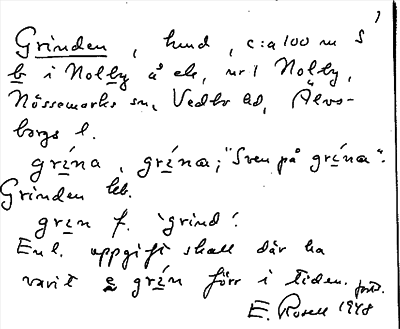 Grinden, hmd, c:a 100 m S
b i Nolby å ek, nr 1 Nolby,
Nössemarks sn, Vedbo hd, Älvs-
borgs l.
grína, grína; "Sven på grína".
Grinden leb.
grɩn f. 'grind'.
Enl. uppgift skall där ha
varit grín förr i tiden. forts.
E. Rosell 1948